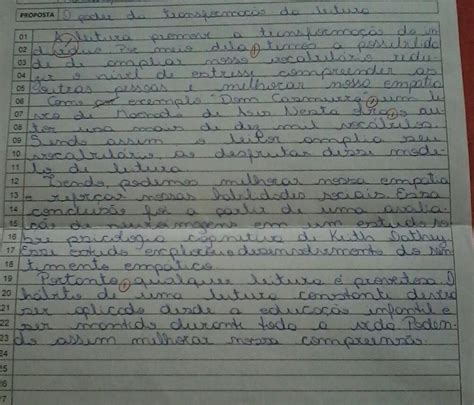 PROPOSTA O poder da transformação da leitura
01 A leitura promove a transformação do in
02 divíduo. Por meio dela, temos a possibilida
03 de de ampliar nosso vocabulário, redu
04 zir o nível de estresse, compreender as
05 outras pessoas e melhorar nossa empatia
06 Como por exemplo "Dom Casmurro", um li
07 vro de Machado de Assis. Nesta obra, o au
08 tor usa mais de dez mil vocábulos.
09 Sendo assim o leitor amplia seu
10 vocabulário, ao desfrutar desse mode
11 lo de leitura
12 Lendo, podemos melhorar nossa empatia
13 e reforçar nossas habilidades sociais. Essa
14 conclusão foi a partir de uma avalia
15 ção de neuroimagens em um estudo so
16 bre psicologia cognitiva de Keith Oatley
17 Esse estudo explorou o desenvolvimento do sen
18 timento empático.
19 Portanto, qualquer leitura é proveitosa. O
20 hábito de uma leitura constante deveria
21 ser aplicado desde a educação infantil e
22 ser mantido durante toda a vida. Poden
23 do assim melhorar nossa compreensão.
24
25
26
27